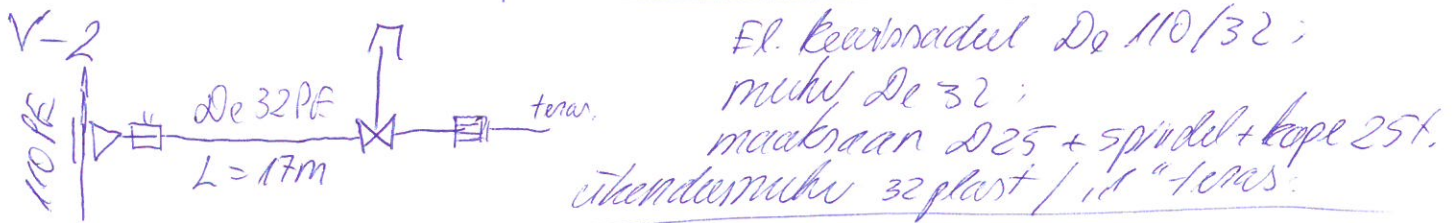 V-2
110 PE
De 32PE
L = 17m
teras.
El. keevissadul De 110/32;
muhv De 32;
maakraan D25 + spindel + kape 25t.
ühendusmuhv 32 plast / 1" teras.